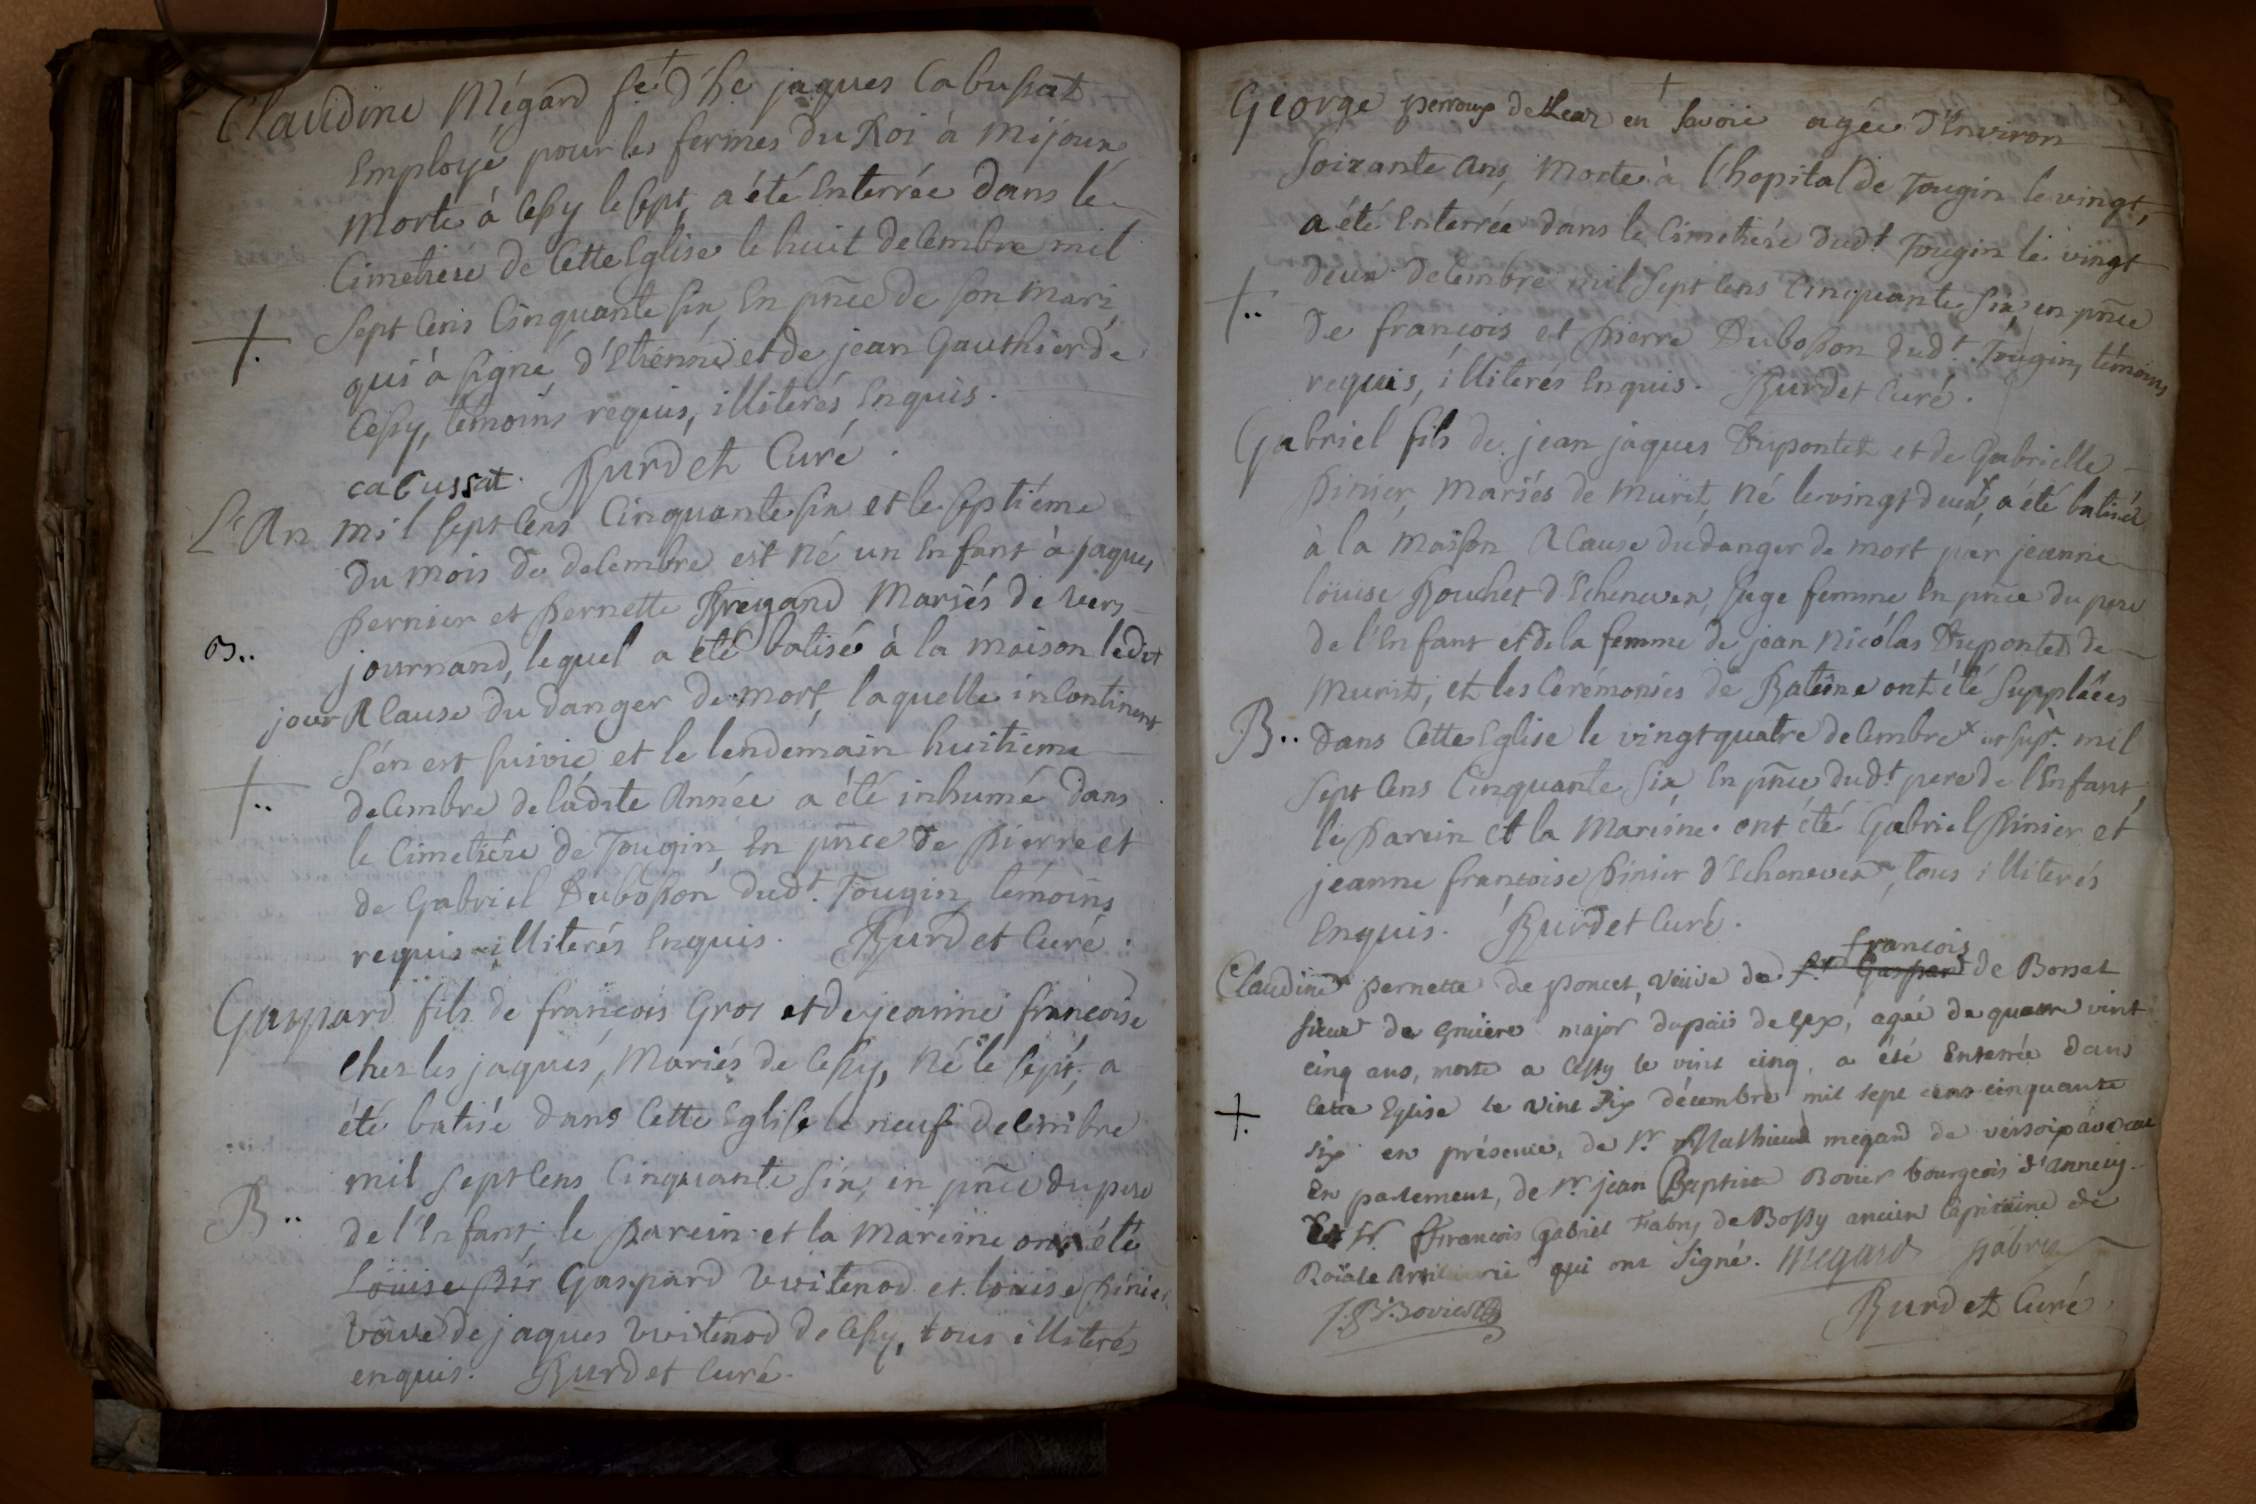 Claudine Mégard fe. d'h.e jaques Cabussat
Employé pour les fermes du Roi à Mijoux
Morte à Cessy le sept, a été Enterrée dans le
Cimetiere de Cette Eglise le huit decembre mil
Sept Cens Cinquante Six, En pñce de Son Mari
qui à Signé d'Etienne et de jean Gauthier de
Cessy, témoins requis, illiterés Enquis.
cabussat. Burdet Curé.
L'An mil Sept Cens Cinquante Six et le Septiéme
du mois de decembre est Né un Enfant à jaques
Pernier et Pernette Bregand Mariés de Vers
journand, lequel a été batisé à la maison ledit
jour A Cause du danger de mort, laquelle incontinent
S'en est Suivie et le lendemain huitiéme
decembre de ladite Année a été inhumé dans
le Cimetiére de Tougin, En pñce de Pierre et
de Gabriel Dubosson dud.t Tougin, témoins
requis illiterés Enquis. Burdet Curé.
Gaspard fils de françois Gros et de jeanne françoise
Chez les jaques, Mariés de Cessy, Né le Sept, a
été batisé dans Cette Eglise le neuf decembre
mil Sept Cens Cinquante Six, en pñce du pere
B..
de l'Enfant, le Parein et la Mareine ont été
Louise Pir Gaspard Vvitenod et louise Pinier
Veuve de jaques Vvitenod de Cessy, tous illiterés
enquis. Burdet Curé.
George perroux de en Savoie agée d'Environ
Soixante Ans, Morte à l'hopital de Tougin le vingt,
a été Enterrée dans le Cimetiére dud.t Tougin le vingt
deux decembre mil Sept Cens Cinquante Six en pñce
de françois et Pierre Dubosson dud.t Tougin, témoins
requis, illiterés Enquis. Burdet Curé.
Gabriel fils de jean jaques Dupontet et de Gabrielle
Pinier, Mariés de Murit, Né le vingt deux, a été batisé
à la Maison A Cause du danger de mort par jeanne
louise Bouchet d'Echenevex, Sage femme En pñce du pere
de l'Enfant et de la femme de jean Nicolas Dupontet de
Murit, et les Cerémonies de Batême ont été Suppléées
B.. dans Cette Eglise le vingt quatre decembre mil
Sept Cens Cinquante Six En pñce dud.t pere de l'Enfant,
le Parein et la Mareine ont été Gabriel Pinier et
jeanne françoise Pinier d'Echenevex, tous illiterés
Enquis. Burdet Curé.
françois
Claudine pernette de poncet, veuve de Sr Gaspard de Borsat
sieur de Gruiere major du païs de Gex, agée de quatre vint
cinq ans, morte a Cessy le vint cinq, a été Enterrée dans
Cette Eglise le vint Six décembre mil sept cens cinquante
six en présence, de Sr Mathieu megard de versoix avocat
En parlement, de Sr jean Baptiste Bovier bourgeois d'annecy
Et Sr. François Gabriel Fabry de Bossy ancien Capitaine de
Roïale Artillerie qui ont signé. Megard fabry
J. B. Bovier Burdet Curé